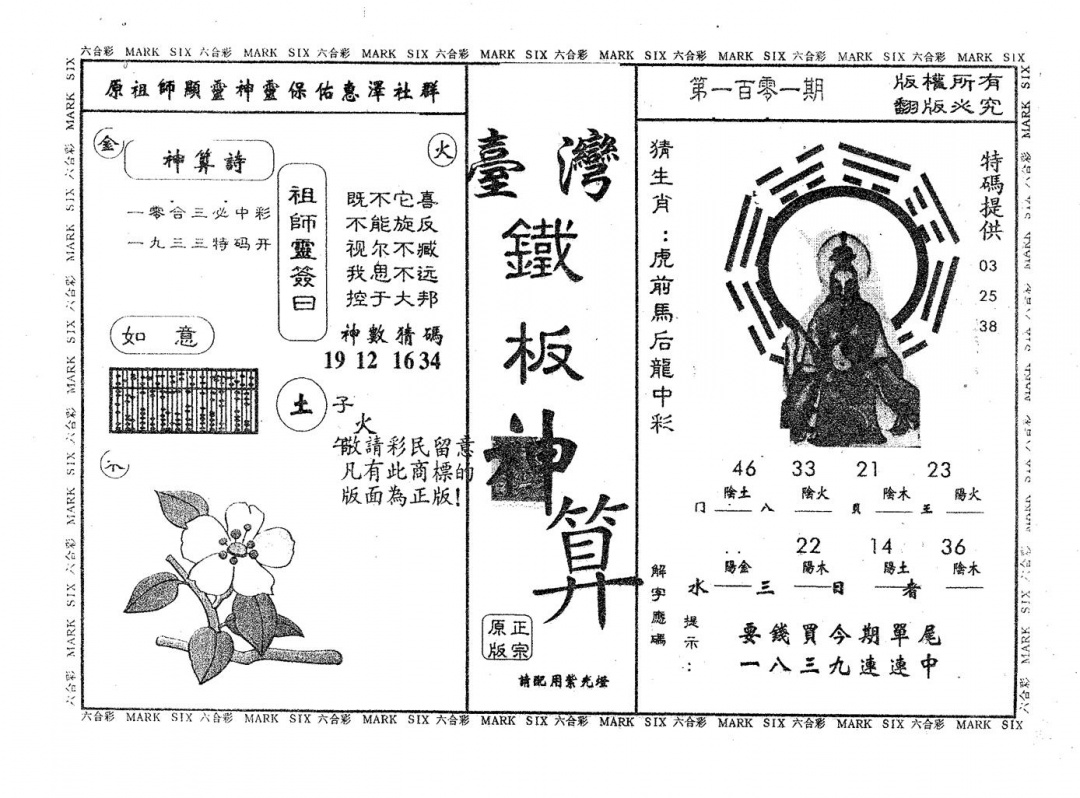 六合彩 MARK SIX 六合彩 MARK SIX 六合彩 MARK SIX 六合彩 MARK SIX 六合彩 MARK SIX 六合彩 MARK SIX 六合彩 MARK SIX 六合彩 MARK SIX
原祖師顯靈神靈保佑惠澤社群
金
火
神算詩
一零合三必中彩
一九三三特码开
祖師靈簽曰
既不它喜
不能旋反
视尔不臧
我思不远
控于大邦
神數猜碼
19 12 16 34
如意
土
子
火
敬請彩民留意
凡有此商標的
版面為正版!
臺灣
鐵
板
神
算
正宗
原版
請配用紫光燈
第一百零一期
版權所有
翻版必究
猜生肖:虎前馬后龍中彩
特碼提供
03
25
38
46 33 21 23
陰土 陰火 陰木 陽火
门 八 貝 王
22 14 36
陽金 陽木 陽土 陰木
水 三 日 者
解字應碼
提示:
要錢買今期單尾
一八三九連連中
六合彩 MARK SIX 六合彩 MARK SIX 六合彩 MARK SIX 六合彩 MARK SIX 六合彩 MARK SIX 六合彩 MARK SIX 六合彩 MARK SIX 六合彩 MARK SIX